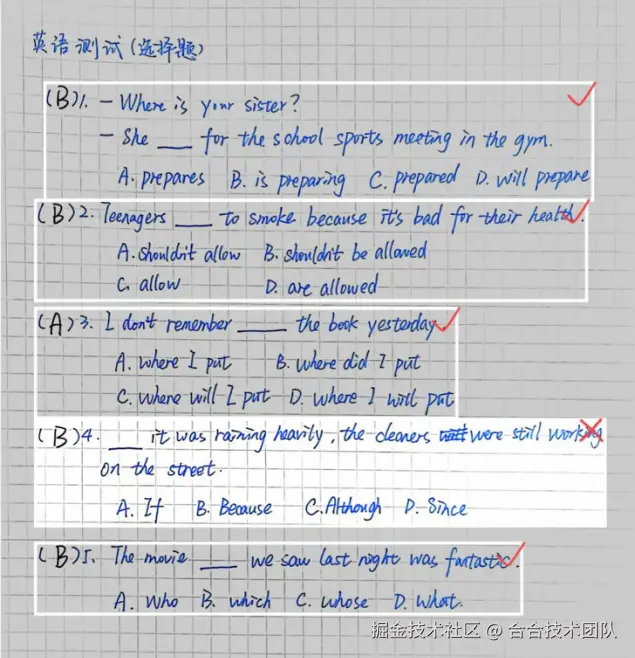 英语测试(选择题)
(B)1. - Where is your sister?
- She ___ for the school sports meeting in the gym.
A. prepares B. is preparing C. prepared D. will prepare
(B)2. Teenagers ___ to smoke because it's bad for their health.
A. shouldn't allow B. shouldn't be allowed
C. allow D. are allowed
(A)3. I don't remember ___ the book yesterday.
A. where I put B. where did I put
C. where will I put D. where I will put
(B)4. ___ it was raining heavily, the cleaners were still working
on the street.
A. If B. Because C. Although D. Since
(B)5. The movie ___ we saw last night was fantastic.
A. who B. which C. whose D. what.
掘金技术社区 @ 合合技术团队